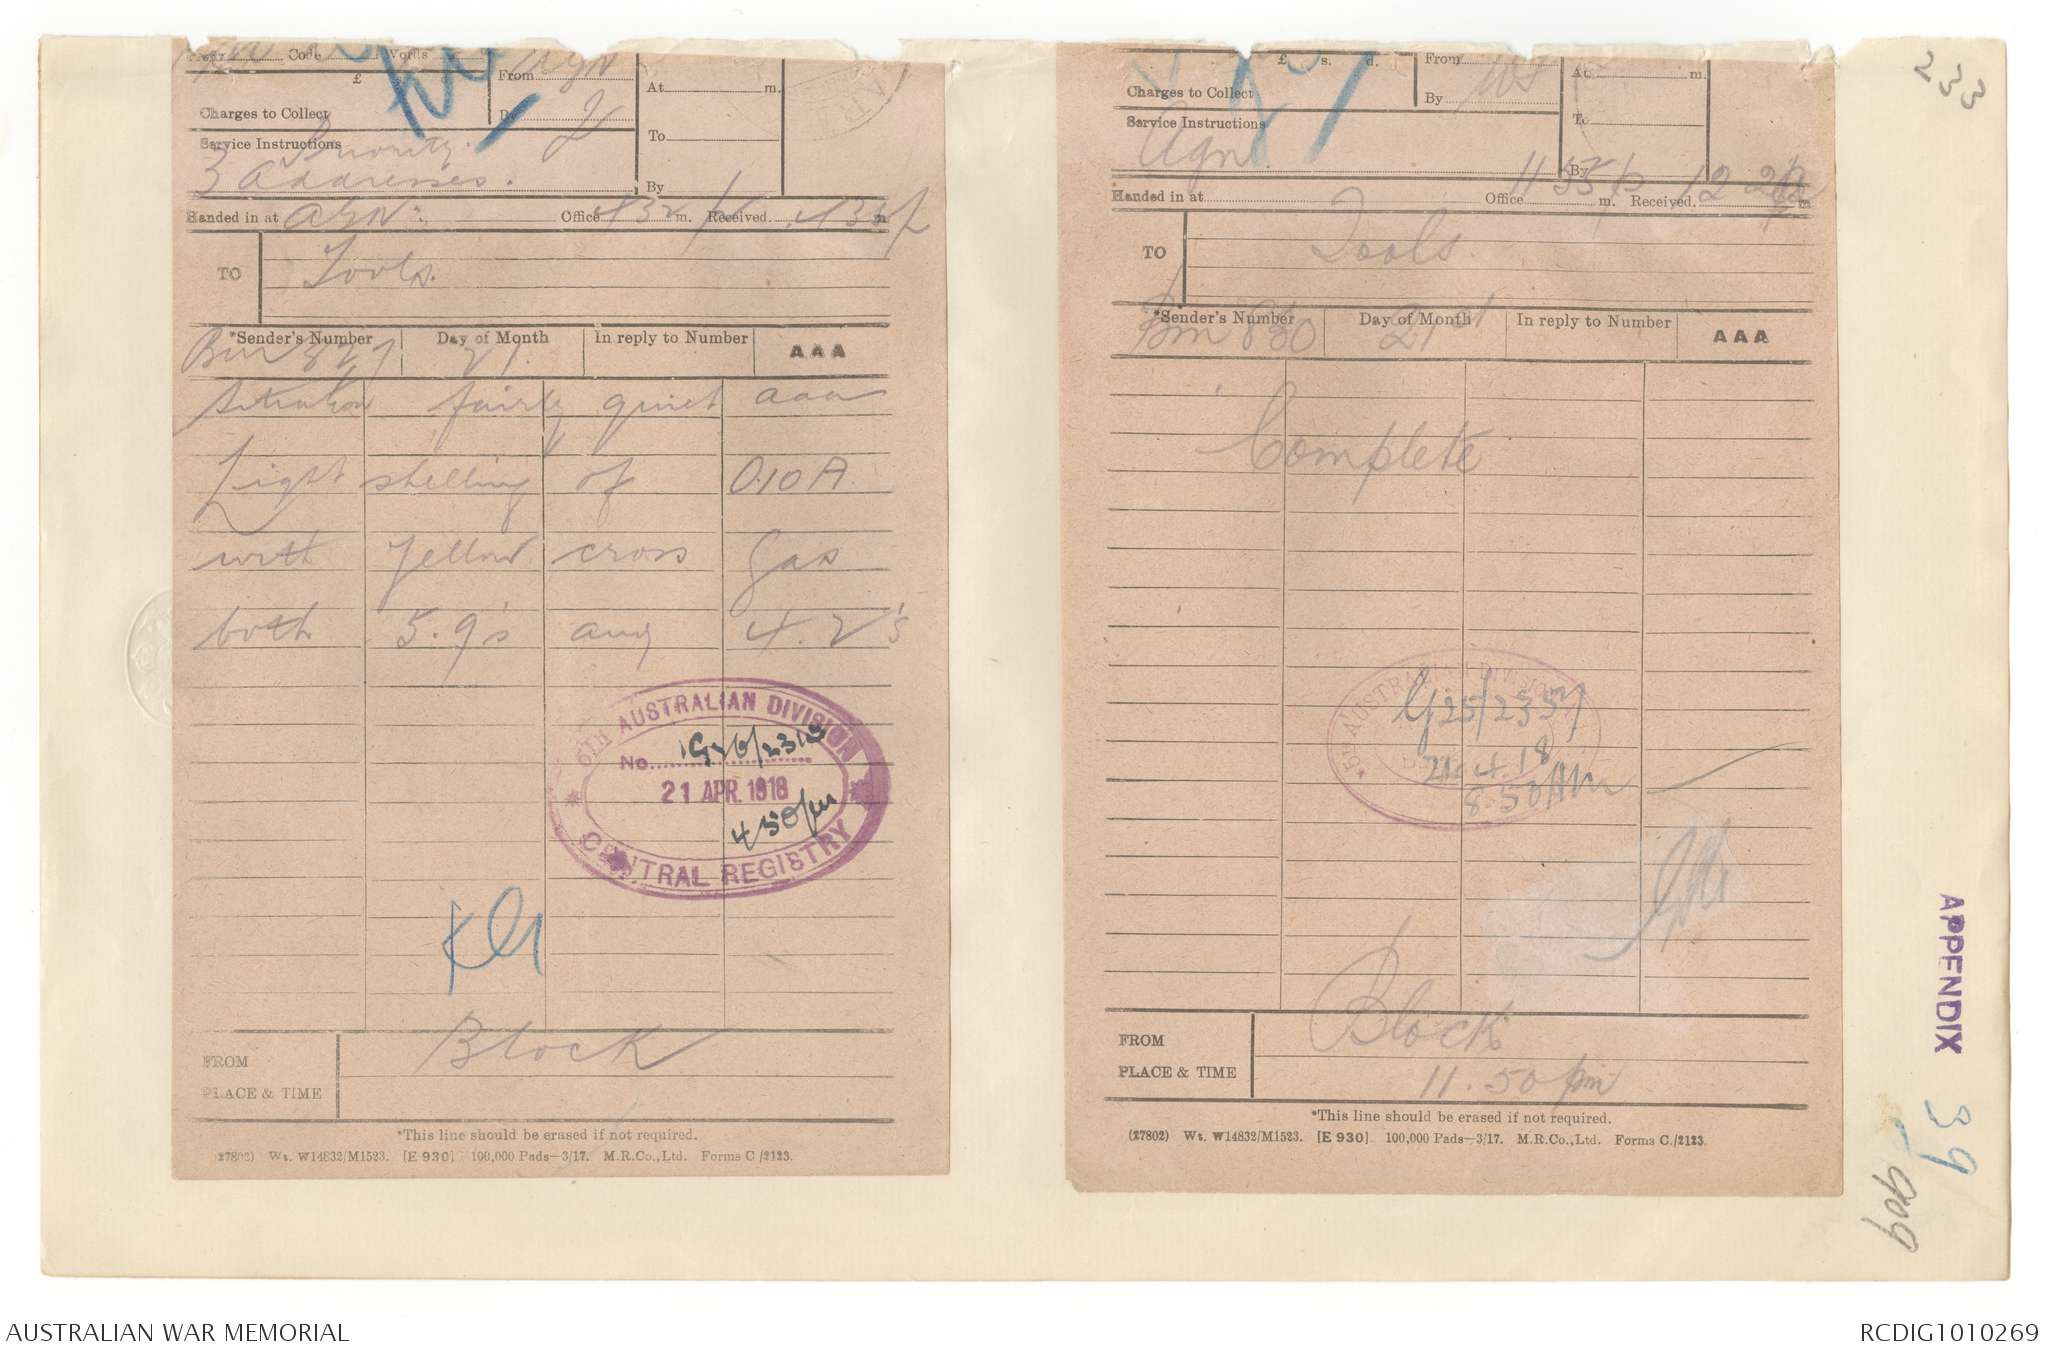 233
Prefix Code Words
£
From AGN
By
At m.
To
By
Charges to Collect
Service Instructions Priority.
3 Addresses.
Handed in at AGN. Office 432 p m. Received 435 p m
TO Tools.
*Sender's Number Day of Month In reply to Number AAA
Bm 827 21.
Situation fairly quiet aaa
Light shelling of O.10.A.
with Yellow cross Gas
both 5.9's and 4.2's
5TH AUSTRALIAN DIVISION
No. G26/2313
21 APR. 1918
450pm
CENTRAL REGISTRY
Block
FROM
PLACE & TIME
*This line should be erased if not required.
(27802) Wt. W14832/M1523. [E 930] 100,000 Pads—3/17. M.R.Co., Ltd. Forms C/2123.
£ s. d.
Charges to Collect
From
By
At m.
To
By
Service Instructions
Agn.
Handed in at Office 1155 p m. Received 12 m
TO Tools.
*Sender's Number Day of Month In reply to Number AAA
Bm 830 21st
Complete
5TH AUSTRALIAN DIVISION
G25/2337
21.4.18
8.50AM
Block
FROM
PLACE & TIME 11.50 pm
*This line should be erased if not required.
(27802) Wt. W14832/M1523. [E 930] 100,000 Pads—3/17. M.R.Co., Ltd. Forms C./2123.
APPENDIX 39
909
AUSTRALIAN WAR MEMORIAL
RCDIG1010269